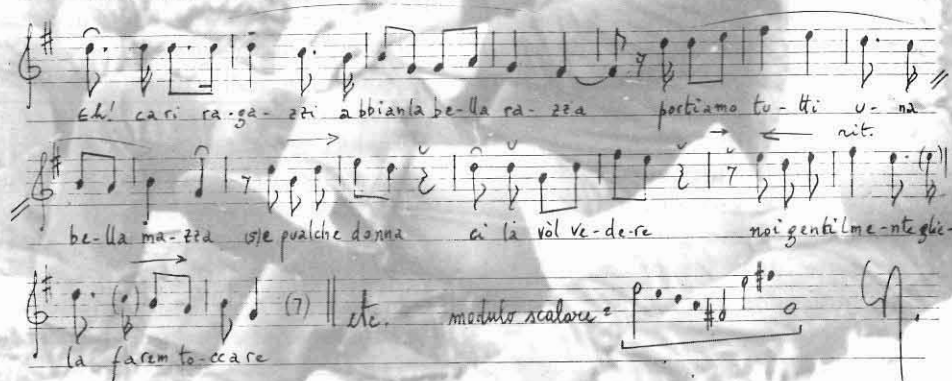 Eh! cari ra-ga-zzi abbianla be-lla ra-zza portiamo tu-tti u-na
rit.
be-lla ma-zza (s)e qualche donna ci la vòl ve-de-re noi gentilme-nte glie-
la farem to-ccare (7) etc. modulo scalare =